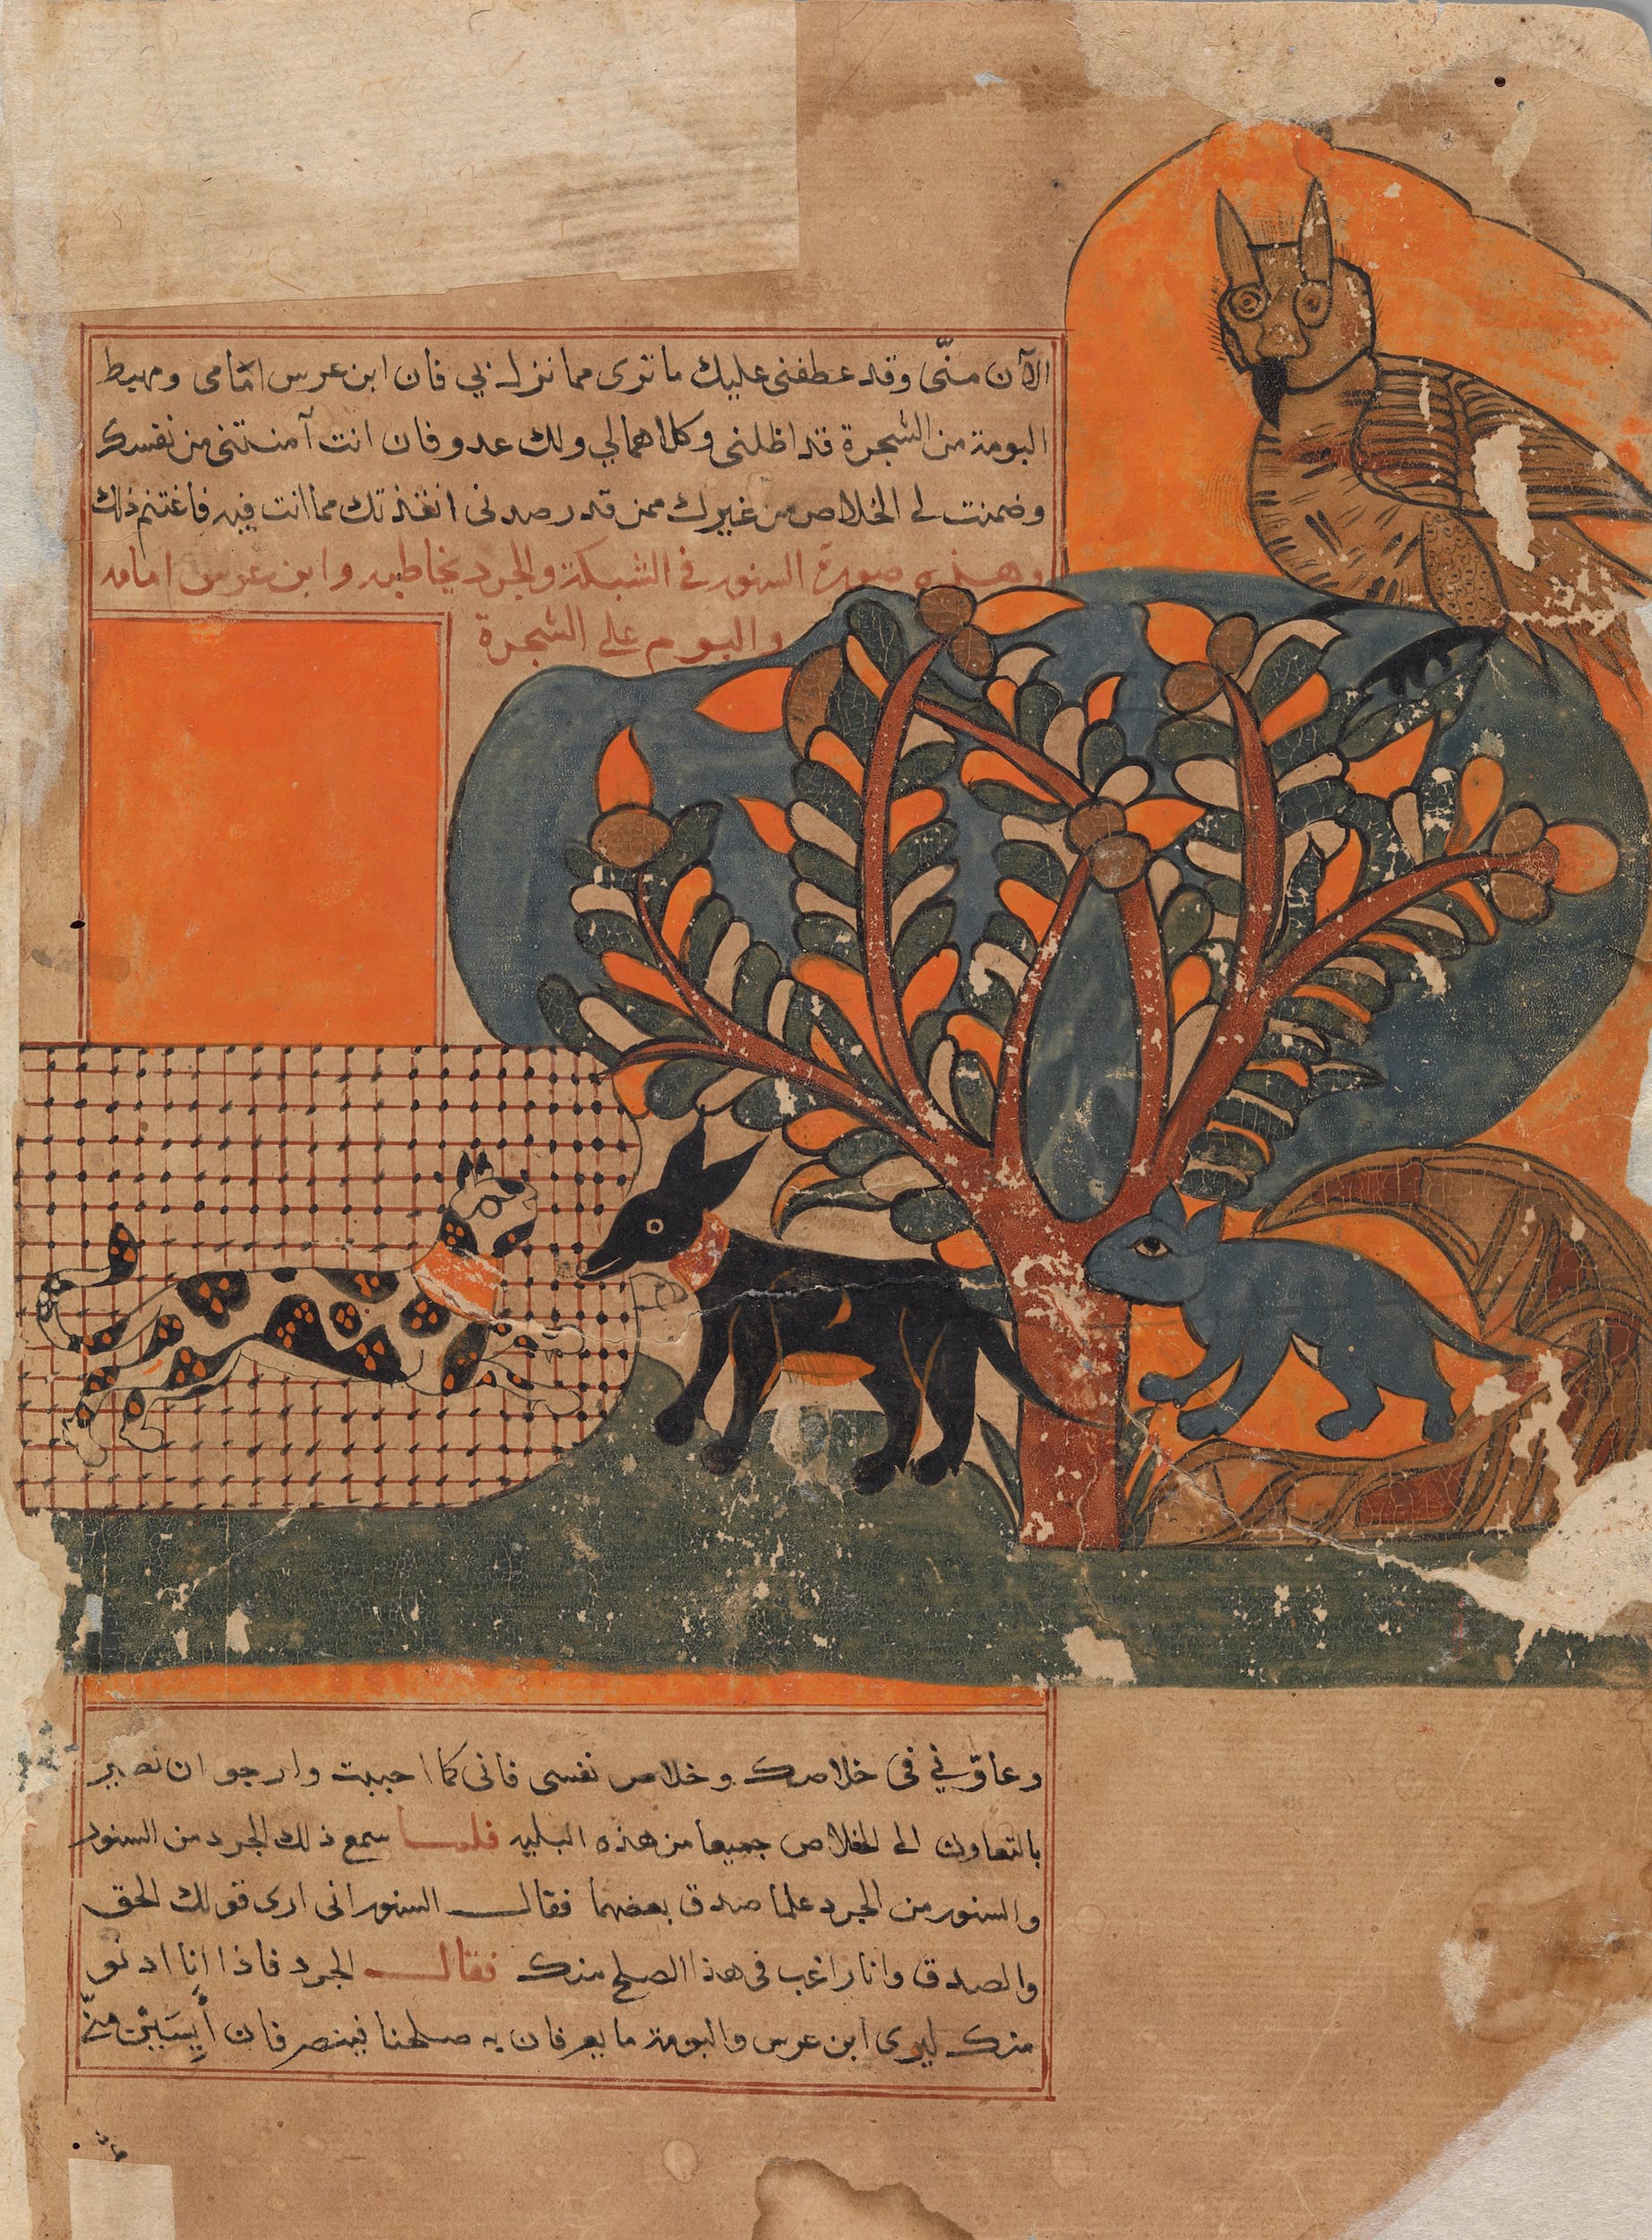 الآن منّى وقد عطفنى عليك ما ترى مما نزل بي فان ابن عرس امّامى ومهبط
البومة من الشجرة قد اظلنى وكلاهما لي ولك عدو فان انت آمنتنى من نفسك
وضمنت لى الخلاص من غيرك ممن قد رصدنى انقذتك مما انت فيه فاغتنم ذلك
وهذه صورة السنور فى الشبكة والجرد يخاطبه وابن عرس امامه
والبوم على الشجرة
وعاوّني فى خلاصك وخلاص نفسى فانى كما احببت وارجو ان نصير
بالتعاون الى الخلاص جميعا من هذه البليه فلما سمع ذلك الجرد من السنور
والسنور من الجرد علما صدق بعضهما فقال السنور انى ارى قولك الحق
والصدق وانا راغب فى هذا الصلح منك فقال الجرد فاذا انا ادنو
منك ليرى ابن عرس والبومة ما يعرفان به صلحنا فينصرفان